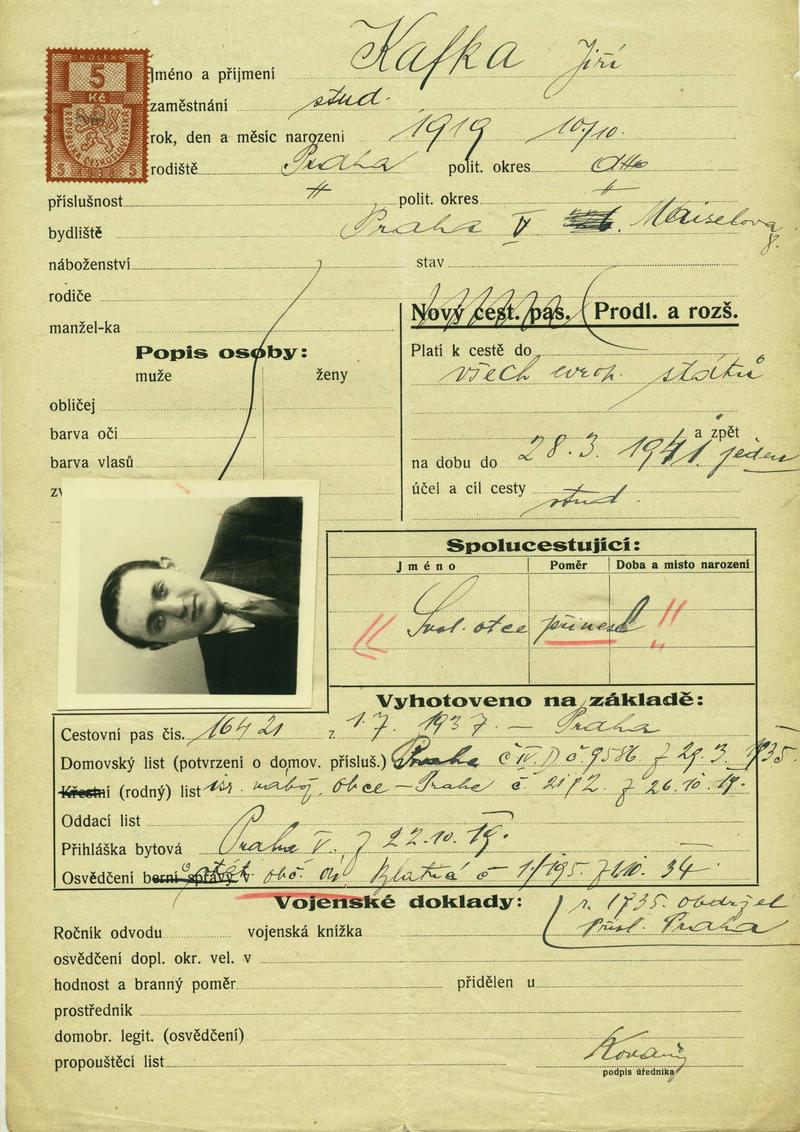 5
Kč
REPUBLIKA ČESKOSLOVENSKÁ
5 5
Jméno a příjmení Kafka Jiří
zaměstnání stud.
rok, den a měsíc narození 1919 10/10.
rodiště Praha polit. okres dtto
příslušnost " polit. okres "
bydliště Praha V Maiselova 8.
náboženství stav
rodiče
manžel-ka
Nový cest. pas. Prodl. a rozš.
Popis osoby:
muže ženy
Platí k cestě do všech evrop. států
obličej
barva očí
a zpět
barva vlasů
na dobu do 28.3. 1941. jeden
účel a cíl cesty stud.
Spolucestující:
Jméno Poměr Doba a místo narození
" Svol. otce přinesl "
Vyhotoveno na základě:
Cestovní pas čís. 16421 z 1.7. 1937 – Praha
Domovský list (potvrzení o domov. přísluš.) Praha č IV. D č 9586 z 29.3. 1935.
Křestní (rodný) list isr. nábož. obce – Praha č. 2172 z 26.10.19.
Oddací list
Přihláška bytová Praha V. z 22.10.19.
Osvědčení berní správy v stát. obč. Blatná č 1/195 34
Vojenské doklady:
r. 1935. obdržel
přísl. Praha
Ročník odvodu vojenská knížka
osvědčení dopl. okr. vel. v
hodnost a branný poměr přidělen u
prostředník
domobr. legit. (osvědčení)
propouštěcí list
podpis úředníka